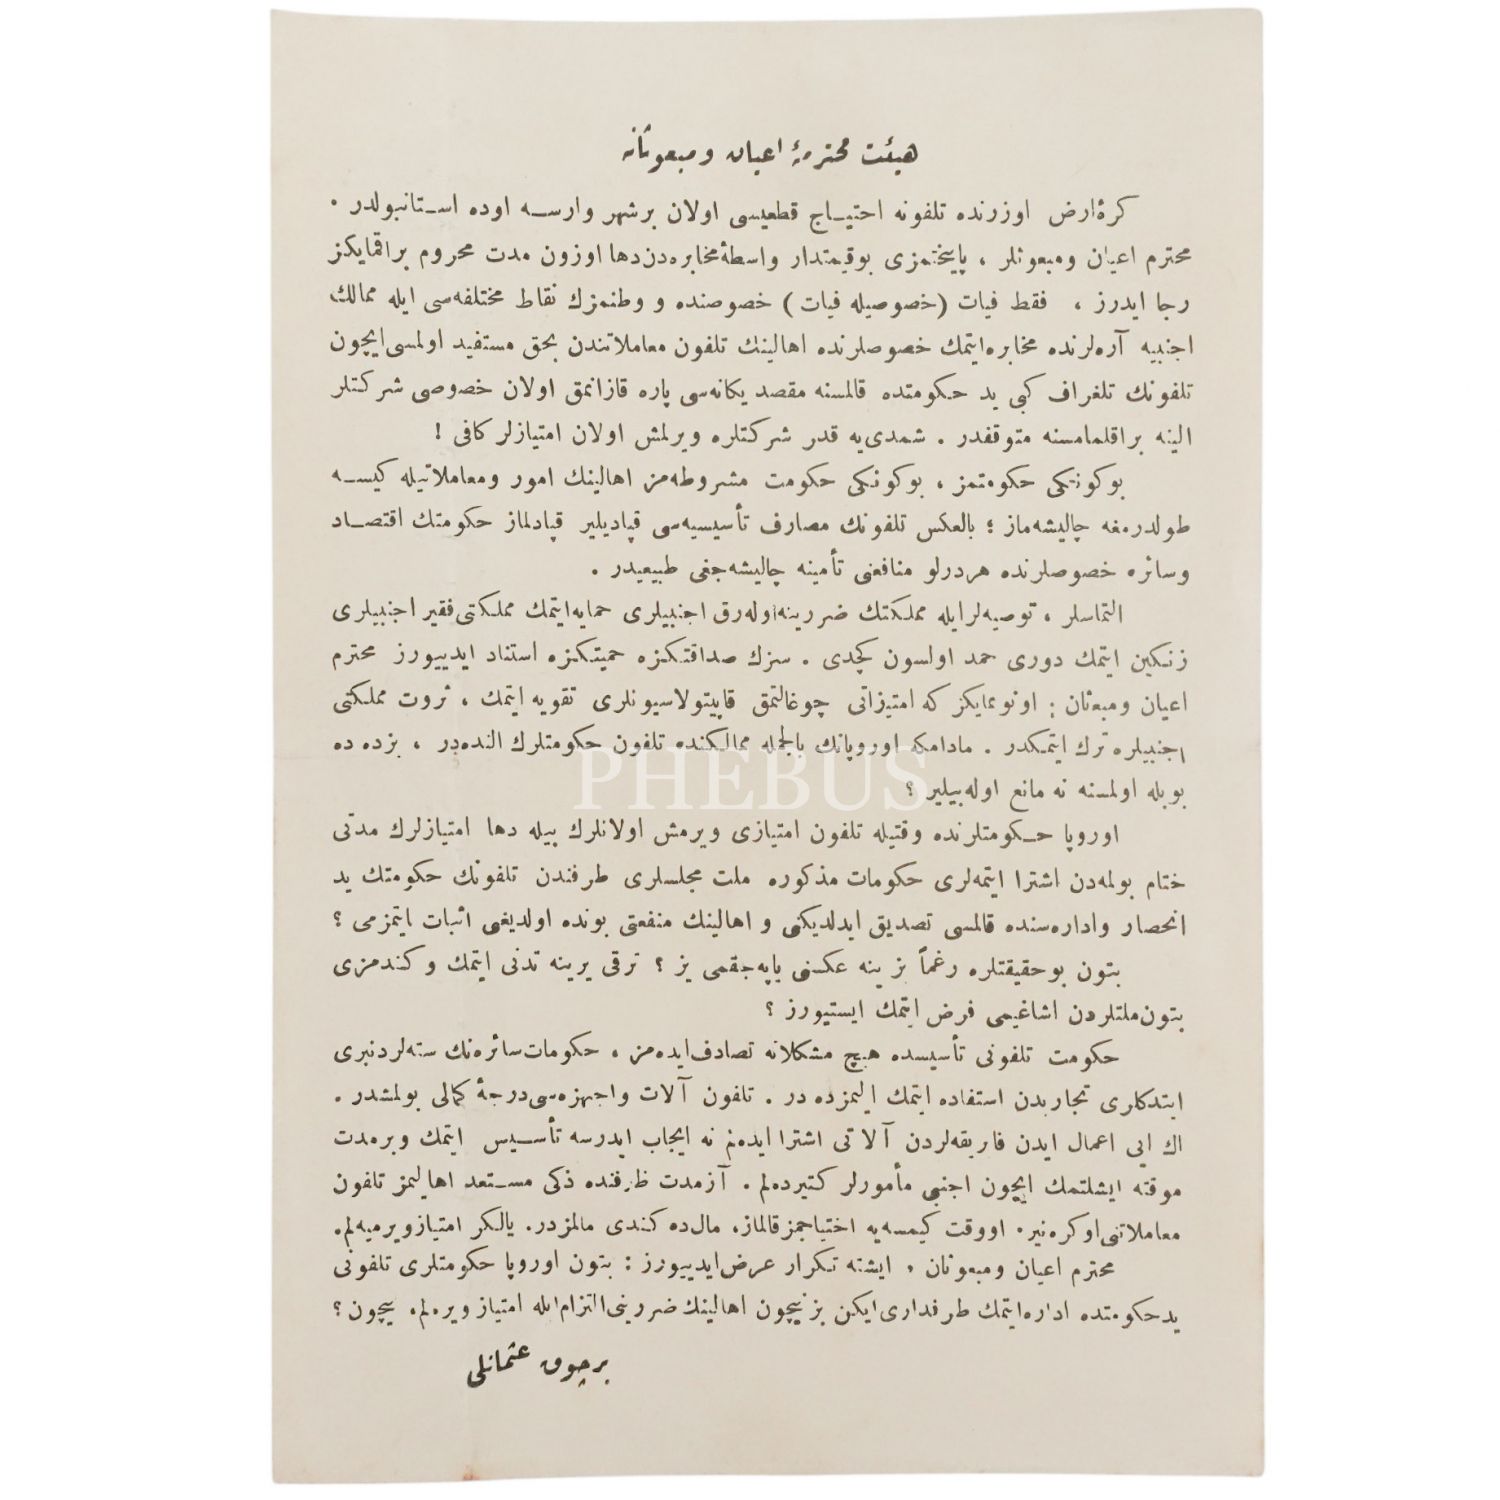 هیئت محترمهٔ اعیان و مبعوثانه
كرهٔ‌ارض اوزرنده تلفونه احتیاج قطعیسی اولان برشهر وارسه اوده استانبولدر .
محترم اعیان ومبعوثلر ، پایتختمزی بوقیمتدار واسطهٔ‌مخابره‌دن‌دها اوزون مدت محروم براقمایكز
رجا ایدرز ، فقط فیات (خصوصیله فیات) خصوصنده و وطنمزك نقاط مختلفه‌سی ایله ممالك
اجنبیه آره‌لرنده مخابره‌ایتمك خصوصلرنده اهالینك تلفون معاملاتندن بحق مستفید اولمسی‌ایچون
تلفونك تلغراف كبی ید حكومتده قالمسنه مقصد یكانه‌سی پاره قازانمق اولان خصوصی شركتلر
الینه براقلمامسنه متوقفدر . شمدی‌یه قدر شركتلره ویرلمش اولان امتیازلر كافی !
بوكونیكی حكومتمز ، بوكونكی حكومت مشروطه‌مز اهالینك امور ومعاملاتیله كیسه
طولدرمغه چالیشه‌ماز ؛ بالعكس تلفونك مصارف تأسیسیه‌سی قپادیلیر قپادلماز حكومتك اقتصاد
وسائره خصوصلرنده هردرلو منافعنی تأمینه چالیشه‌جغی طبیعیدر .
التماسلر ، توصیه‌لرایله مملكتك ضررینه‌اوله‌رق اجنبیلری حمایه‌ایتمك مملكتی‌فقیر اجنبیلری
زنكین ایتمك دوری حمد اولسون كچدی . سزك صداقتكزه حمیتكزه استناد ایدییورز محترم
اعیان ومبعثان : اونوتمایكز كه امتیزاتی چوغالتمق قاپیتولاسیونلری تقویه ایتمك ، ثروت مملكتی
اجنبیلره ترك ایتمكدر . مادامكه اوروپانك بالجمله ممالكنده تلفون حكومتلرك النده‌در ، بزده ده
بویله اولمسنه نه مانع اوله‌بیلیر ؟
PHEBUS
اوروپا حكومتلرنده وقتیله تلفون امتیازی ویرمش اولانلرك بیله دها امتیازلرك مدتی
ختام بولمه‌دن اشترا ایتمه‌لری حكومات مذكوره ملت مجلسلری طرفندن تلفونك حكومتك ید
انحصار واداره‌سنده قالمسی تصدیق ایدلدیكنی و اهالینك منفعتی بونده اولدیغی اثبات ایتمزمی ؟
بتون بوحقیقتلره رغماً بز ینه عكسنی یاپه‌جقمی یز ؟ ترقی یرینه تدنی ایتمك وكندمزی
بتون‌ملتلردن اشاغیمی فرض ایتمك ایستیورز ؟
حكومت تلفونی تأسیسده هیچ مشكلاته تصادف‌ایده‌مز ، حكومات‌سائره‌نك سنه‌لردنبری
ایتدكلری تجاربدن استفاده ایتمك الیمزده در . تلفون آلات واجهزه‌سی‌درجهٔ كمالی بولمشدر .
اك ایی اعمال ایدن فابریقه‌لردن آلاتی اشترا ایده‌لم نه ایجاب ایدرسه تأسیس ایتمك وبرمدت
موقته ایشلتمك ایچون اجنبی مأمورلر كتیرده‌لم . آزمدت ظرفنده ذكی مستعد اهالیمز تلفون
معاملاتنی‌اوكره‌نیر . اووقت كیمسه‌یه احتیاجمزقالماز، مال‌ده كندی مالمزدر. یالكز امتیازویرمیه‌لم.
محترم اعیان ومبعوثان ، ایشته تكرار عرض‌ایدییورز : بتون اوروپا حكومتلری تلفونی
یدحكومتده اداره‌ایتمك طرفداری‌ایكن بز نیچون اهالینك ضررینی‌التزام‌ایله امتیاز ویره‌لم. نیچون ؟
برچوق عثمانلی